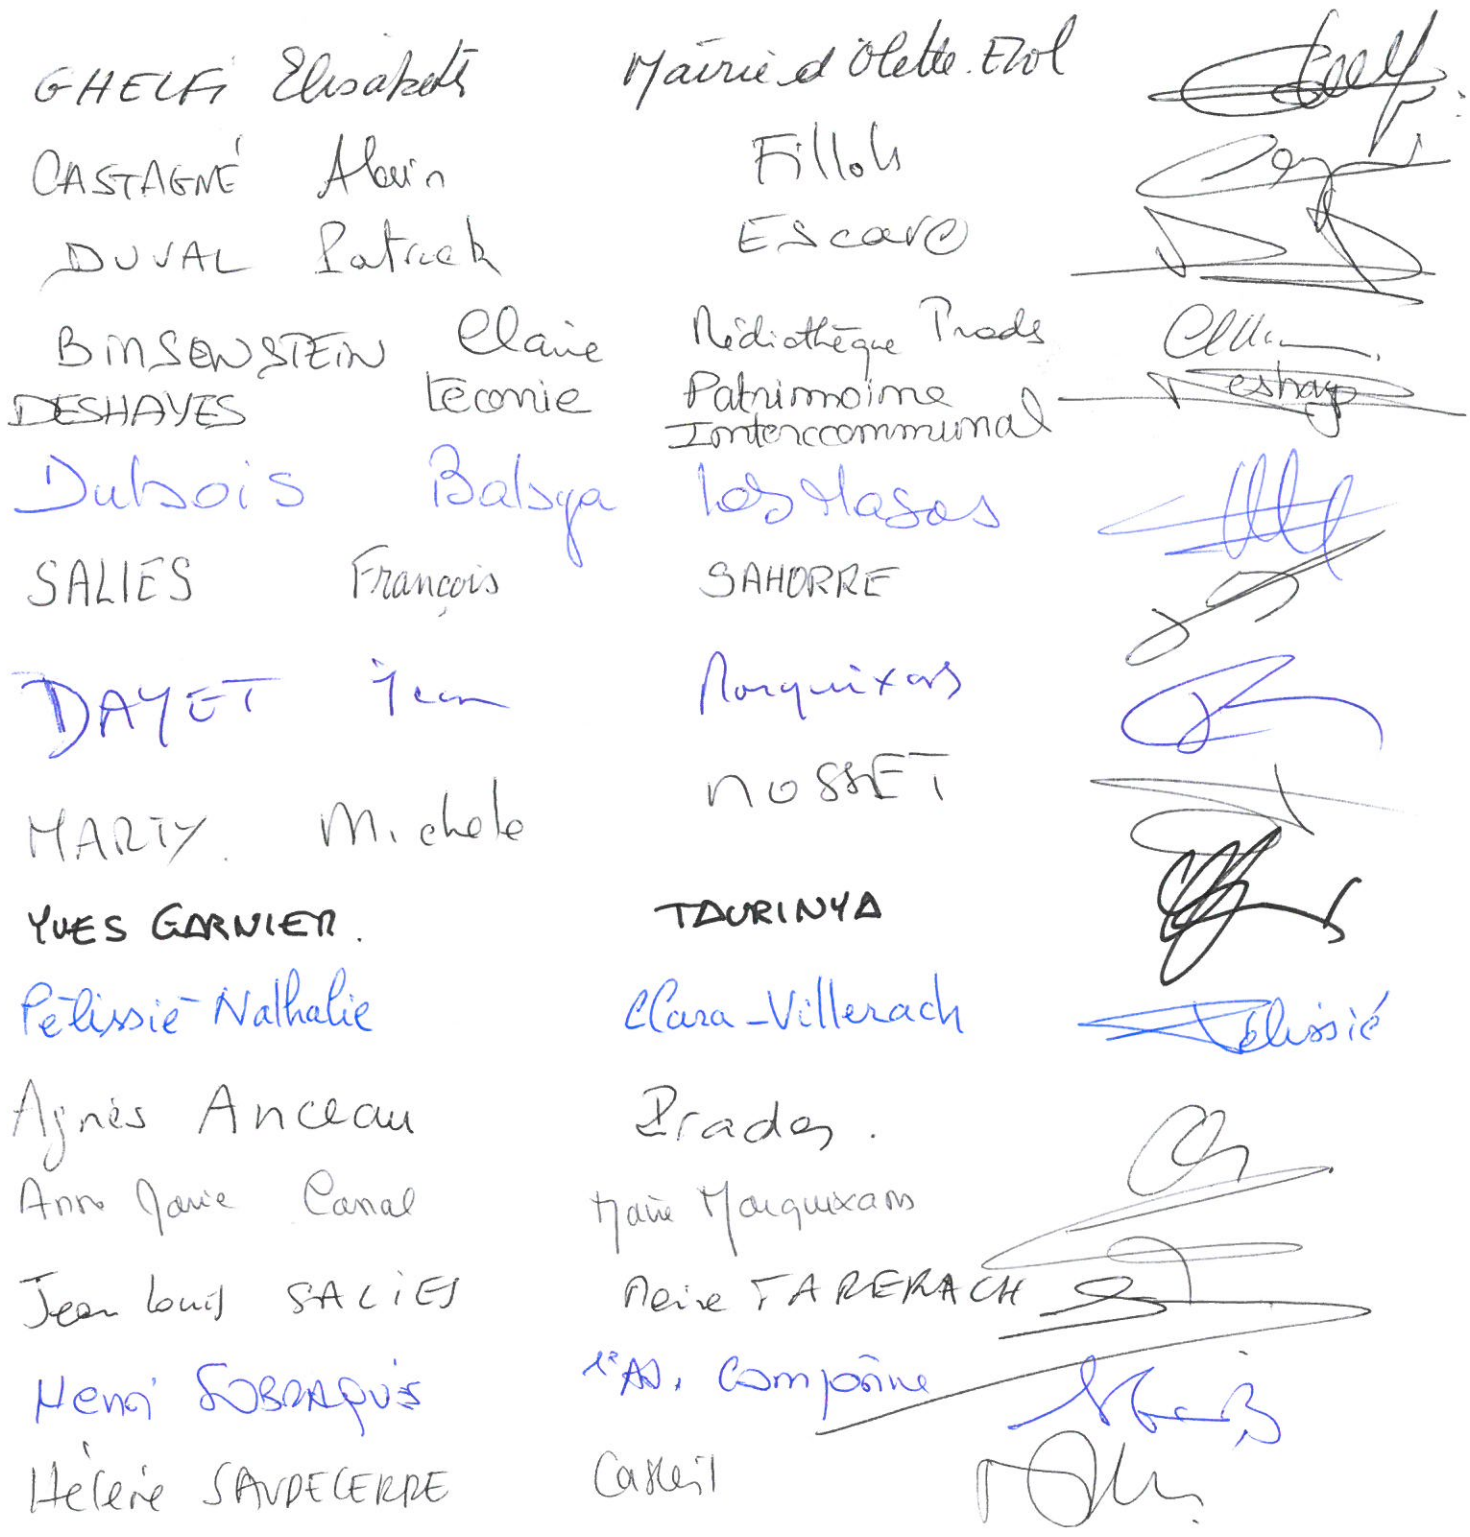 GHELFI Elisabeth Mairie d'Olette.Evol
CASTAGNÉ Alain Fillols
DUVAL Patrick Escaro
BINSENSTEIN Claire Médiathèque Prades
DESHAYES Léonie Patrimoine Intercommunal Deshayes
Dubois Balsya Los Masos
SALIES François SAHORRE
DAYET Jean Marquixans
MARTY Michele MOSSET
YVES GARNIER. TAURINYA
Pélissié Nathalie Clara-Villerach Pélissié
Agnès Anceau Prades.
Anne Marie Canal Mairie Marquixans
Jean Louis SALIES Maire TARERACH
Henri SOBRAQUÈS 1er Adj. Campôme
Hélène SAUDECERRE Casteil